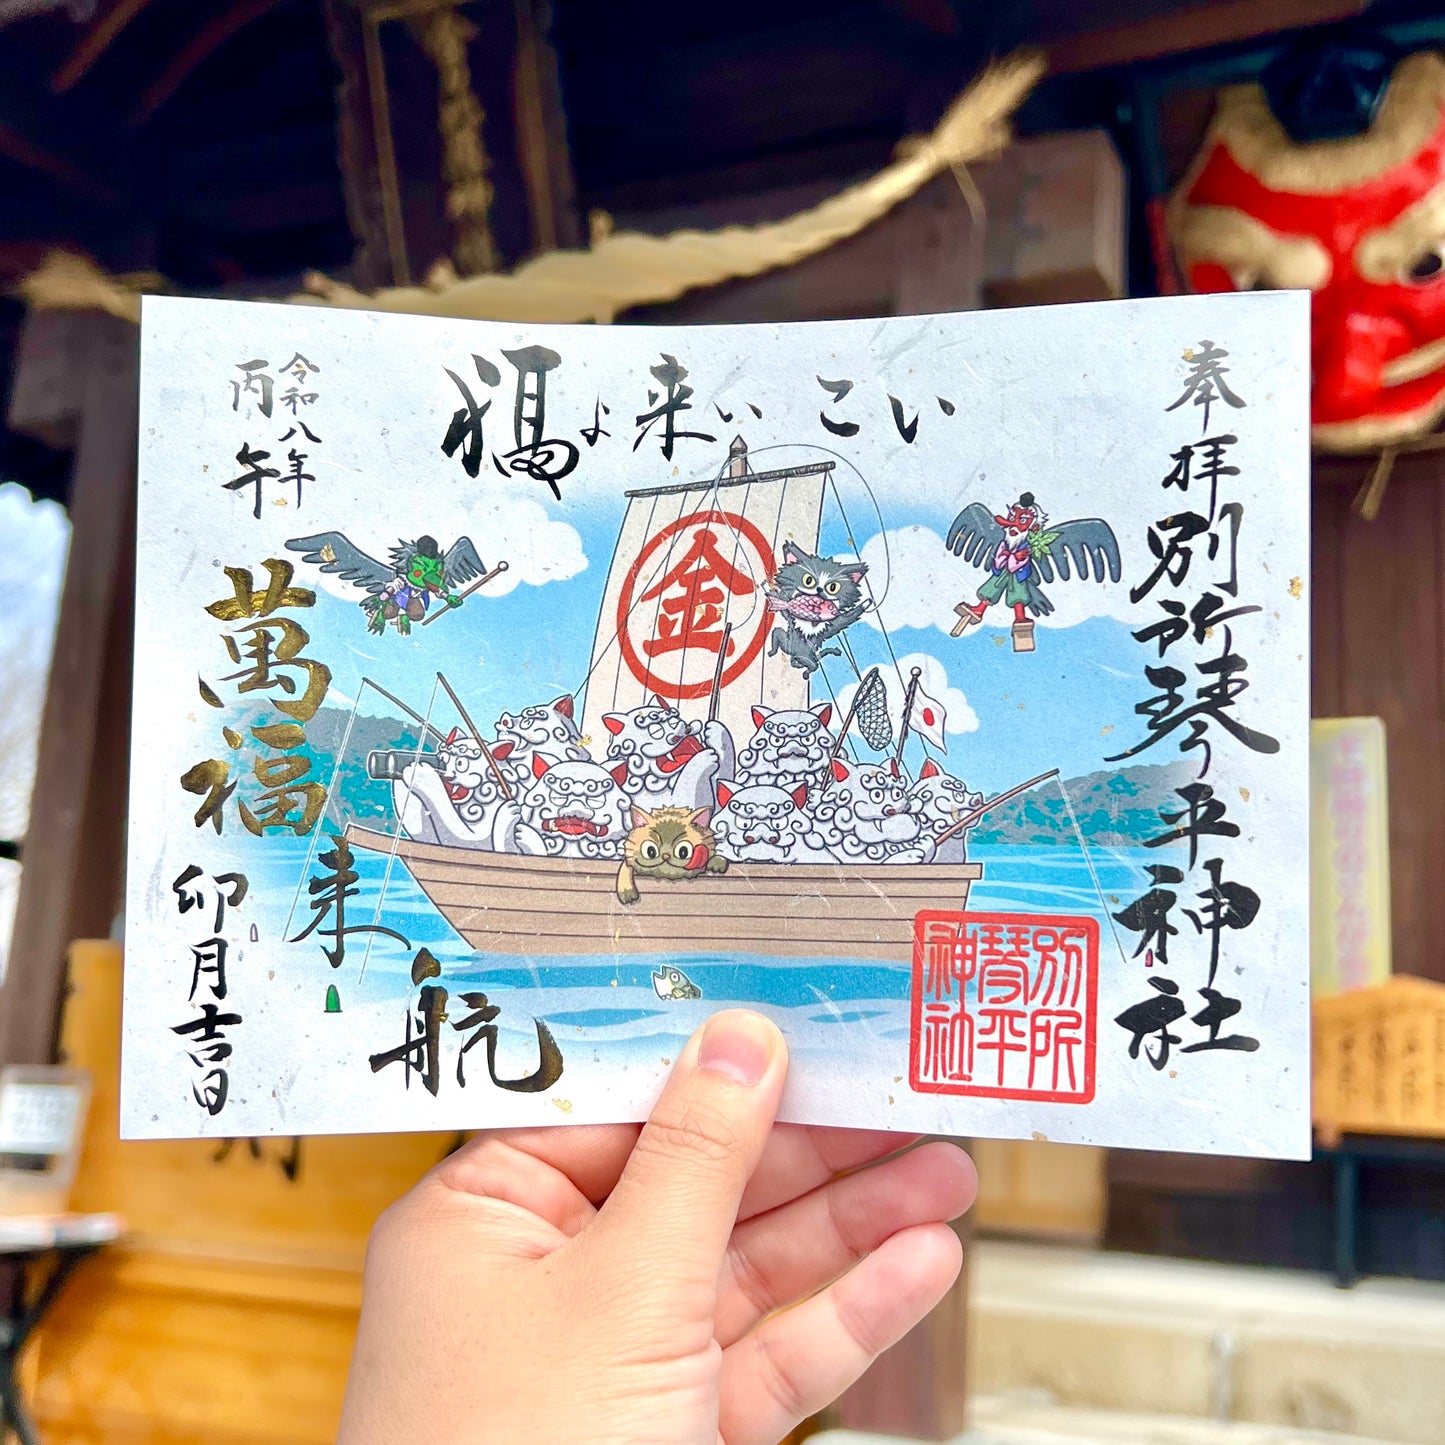 奉拝
別所琴平神社
福よ来い こい
令和八年
丙午
萬福
来航
卯月吉日
金
別所
琴平
神社